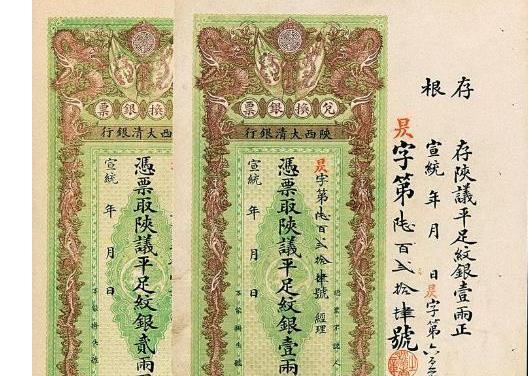 存根
存陝議平足紋銀壹兩正
宣統 年 月 日 昃字第六百
昃字第陸百弍拾肆號
兌換銀票
陝西大清銀行
昃字第陸百弍拾肆號 經理
憑票取陝議平足紋銀壹兩
宣統 年 月 日
換銀票
西大清銀行
憑票取陝議平足紋銀貳兩
宣統 年 月 日